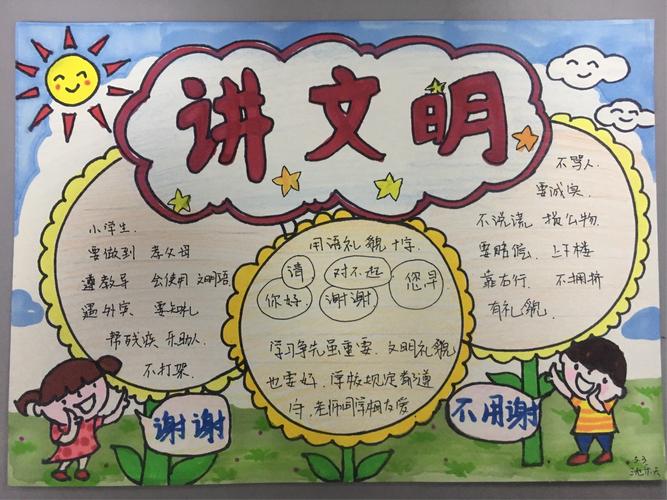 讲文明
小学生.
要做到 孝父母
遵教导 会使用 文明语.
遇外宾. 要知礼
帮残疾 乐助人.
不打架.
用语礼貌十字.
请 对不起 您早
你好. 谢谢.
学习争先虽重要. 文明礼貌
也要好. 学校规定都遵
守. 老师同学相友爱
不骂人.
要诚实.
不说谎. 损公物.
要赔偿. 上下楼
靠右行. 不拥挤
有礼貌.
谢谢
不用谢
5.3